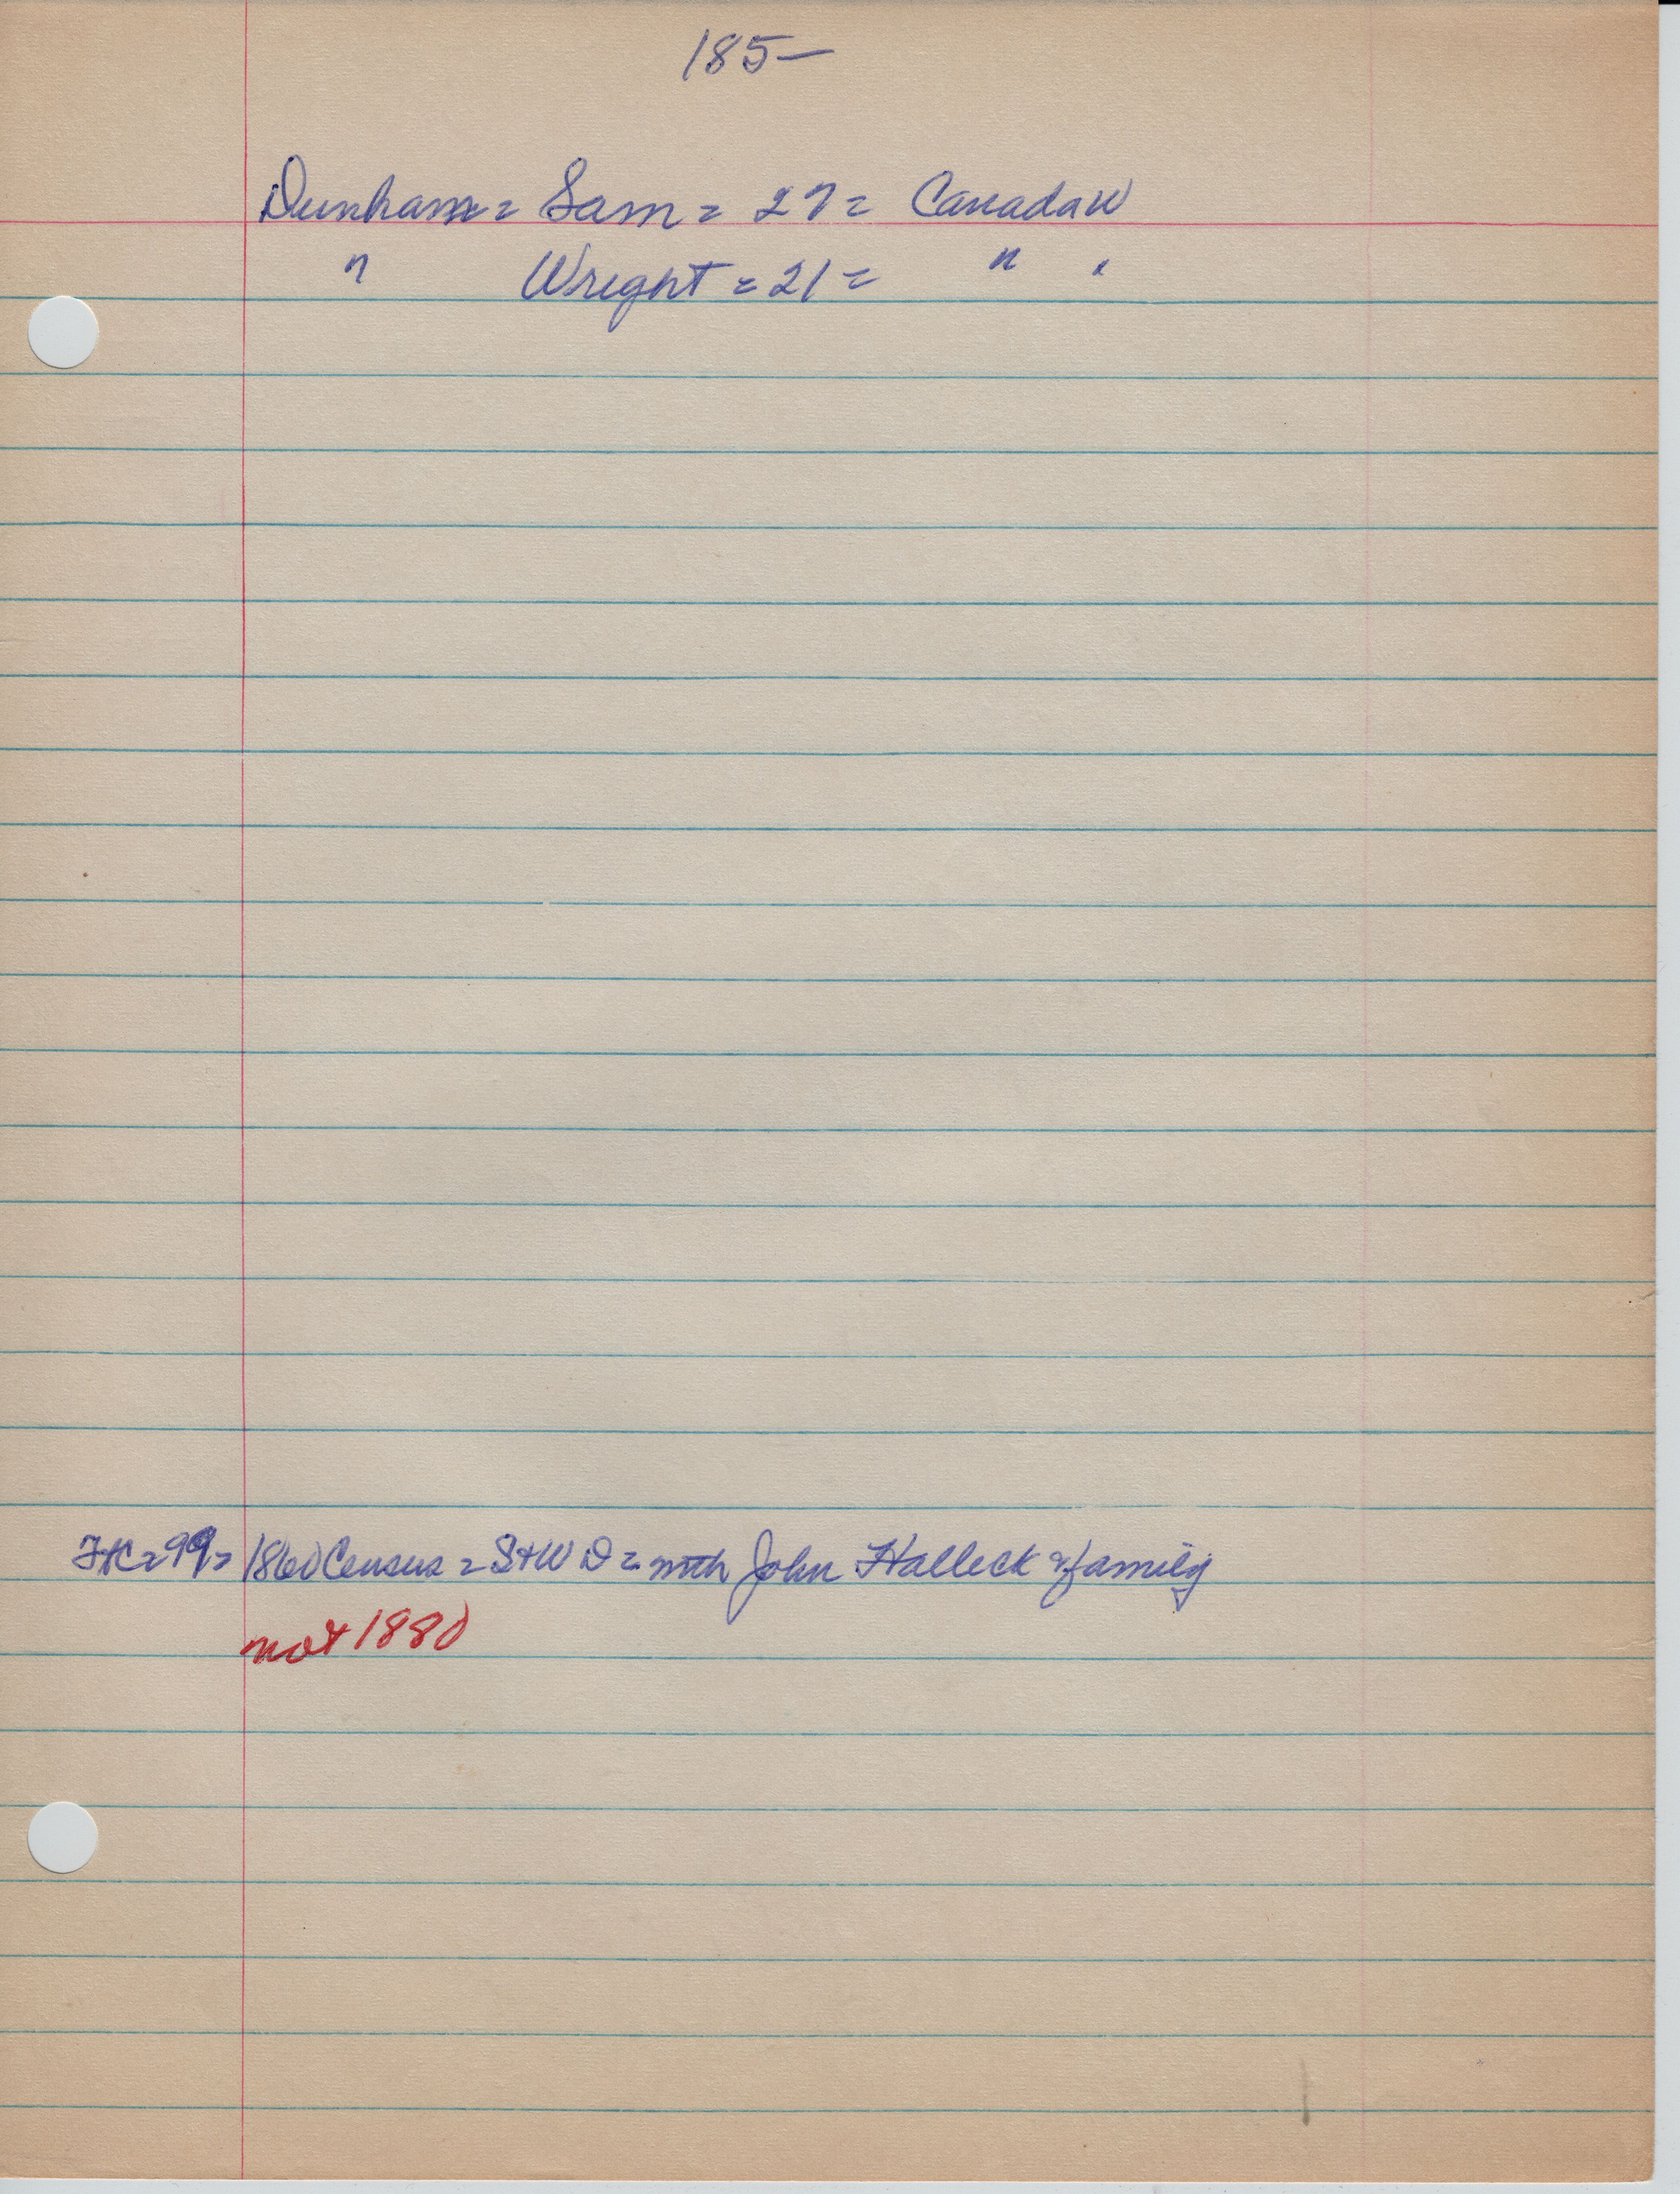 185—
Dunham = Sam = 27 = Canada W
" Wright = 21 = " "
= 99 = 1860 Census = S+W D = with John Halleck & family
not 1880